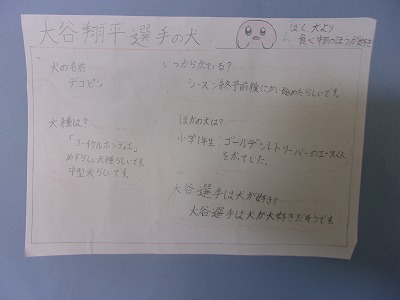 大谷翔平選手の犬
ぼく、犬より
食べ物のほうが好き
犬の名前
デコピン
いつからかている?
シーズン終予前後にかい始めたらしいです。
犬種は?
「コーイケルホンディエ」
めずらしい犬種らしいです。
中型犬らしいです。
ほかの犬は?
小学1年生:ゴールデンレトリーバーのエースくん
をかっていた。
大谷選手は犬が好き?
大谷選手は犬が大好きだそうです。